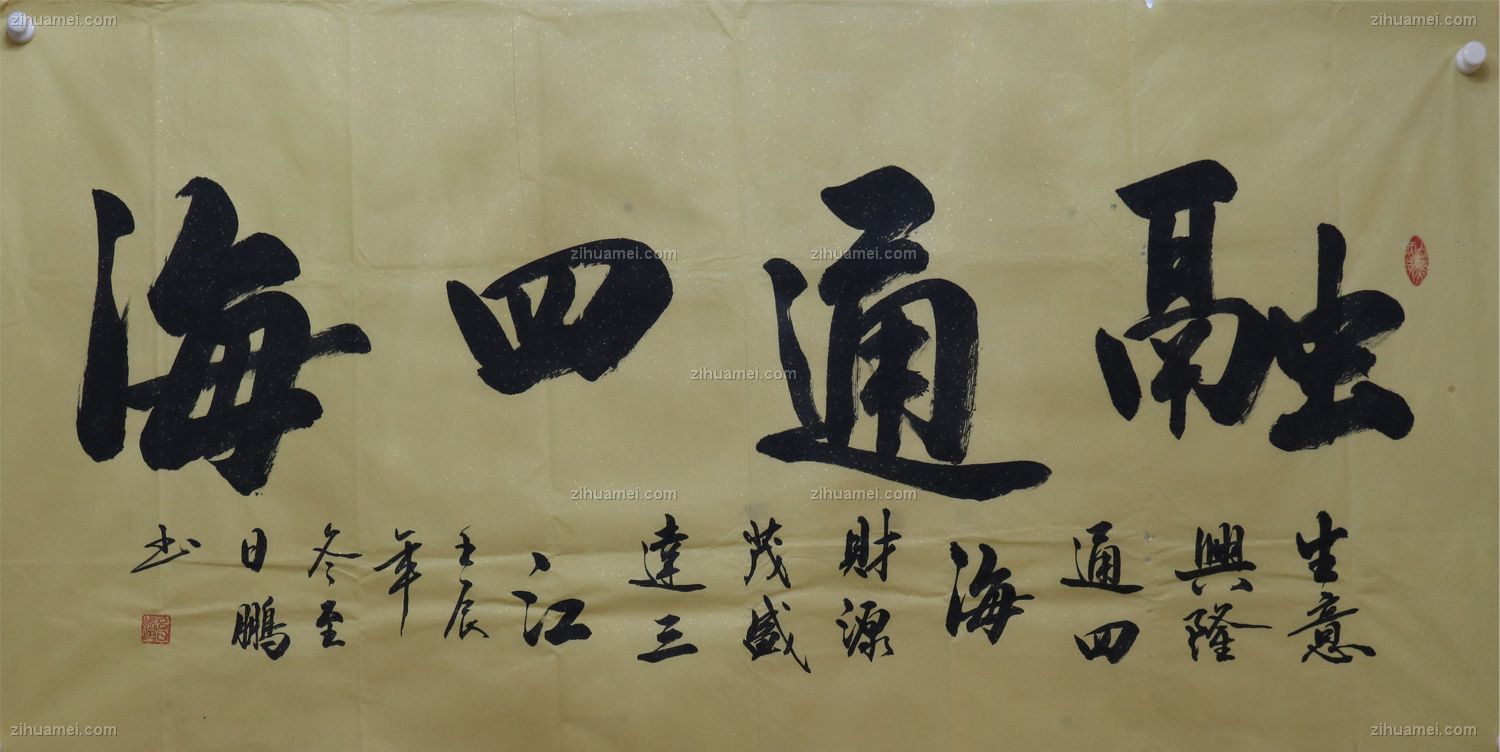 融通四海
生意
興隆
通四
海
財源
茂盛
達三
江
壬辰
年
冬至
日鵬
书
zihuamei.com
zihuamei.com
zihuamei.com
zihuamei.com
zihuamei.com
zihuamei.com
zihuamei.com
zihuamei.com
zihuamei.com